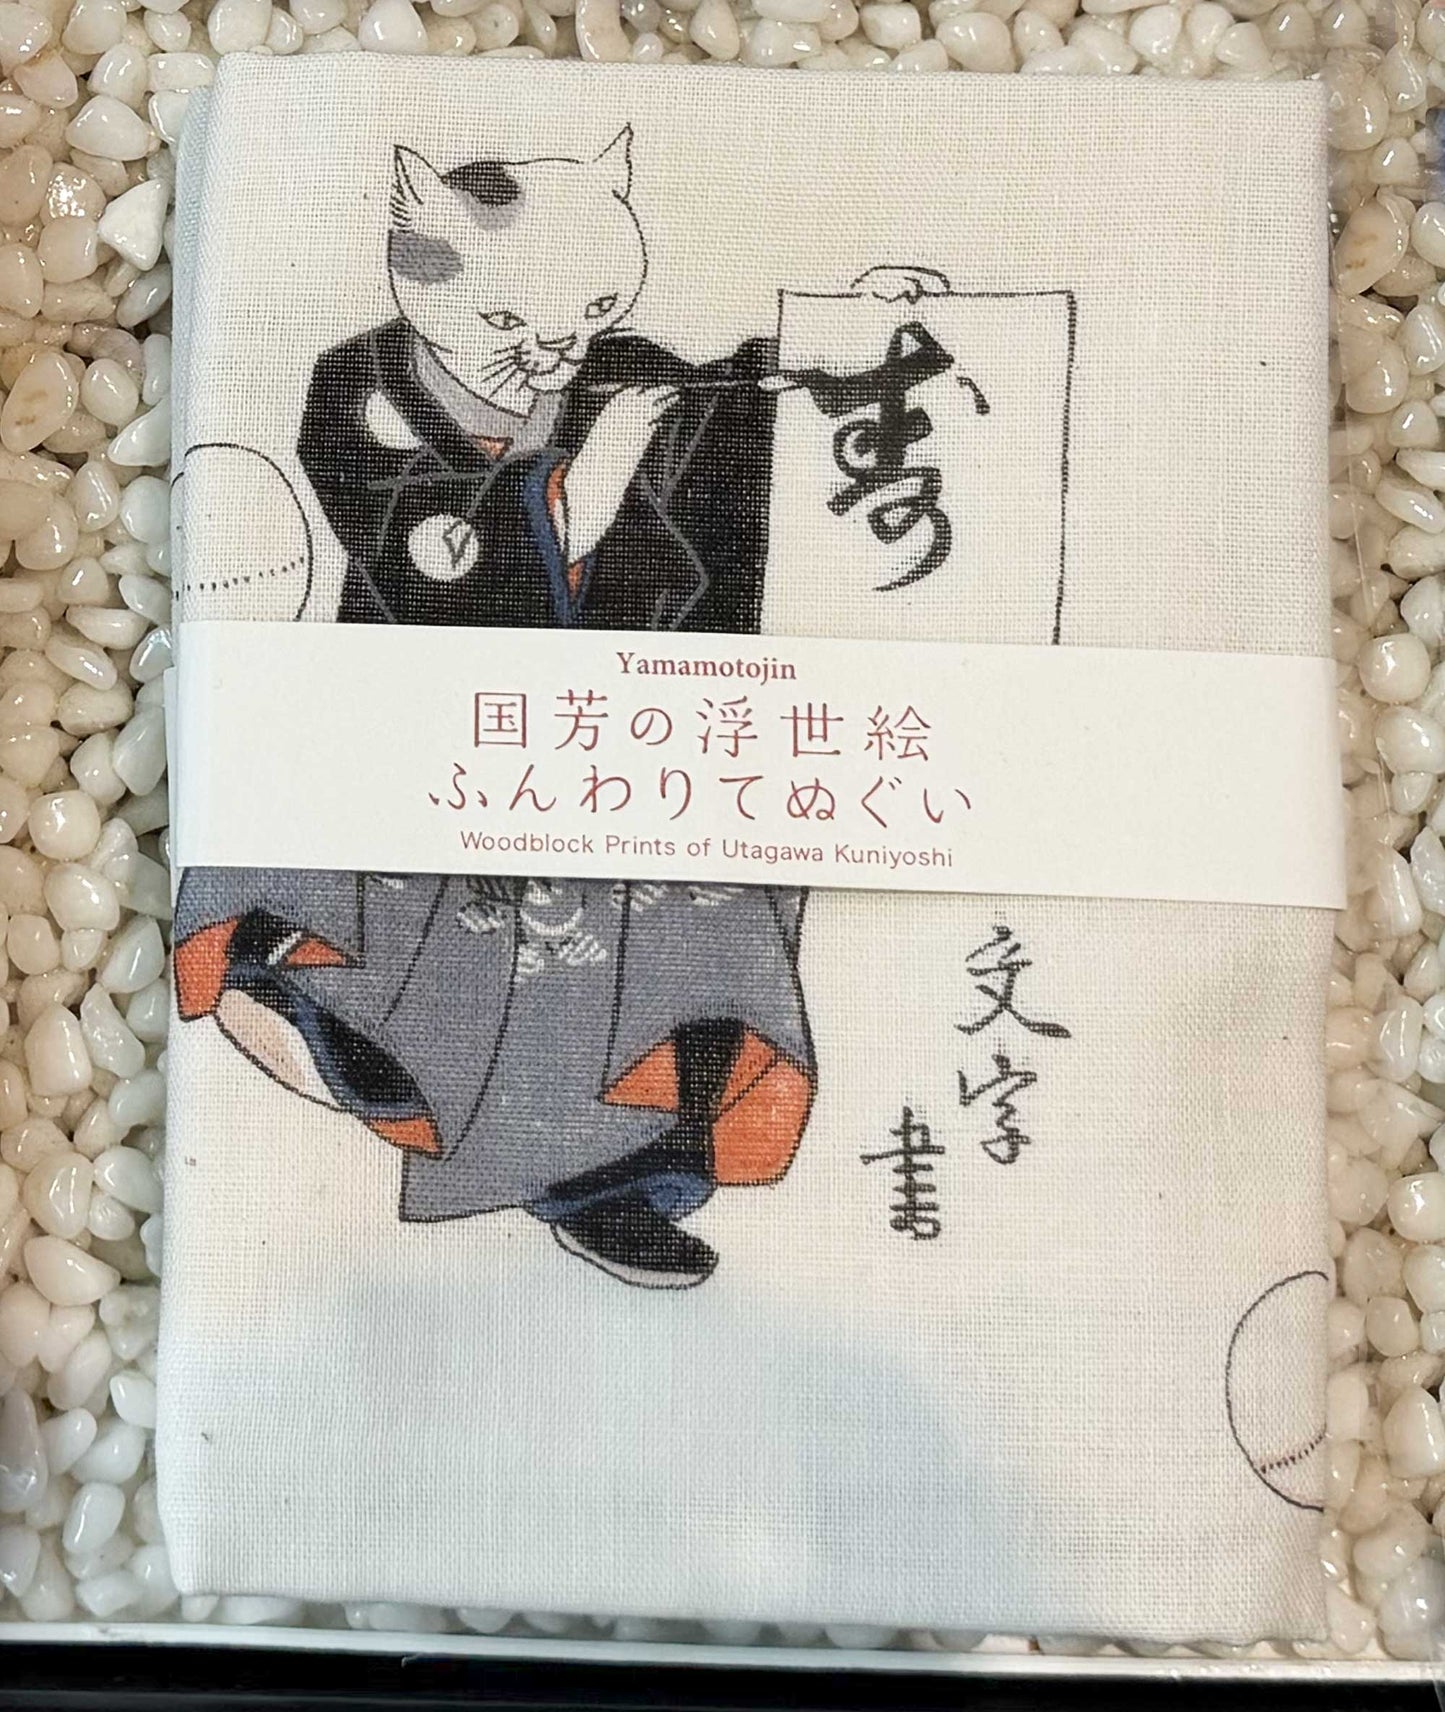 寿
Yamamotojin
国芳の浮世絵
ふんわりてぬぐい
Woodblock Prints of Utagawa Kuniyoshi
文字
書